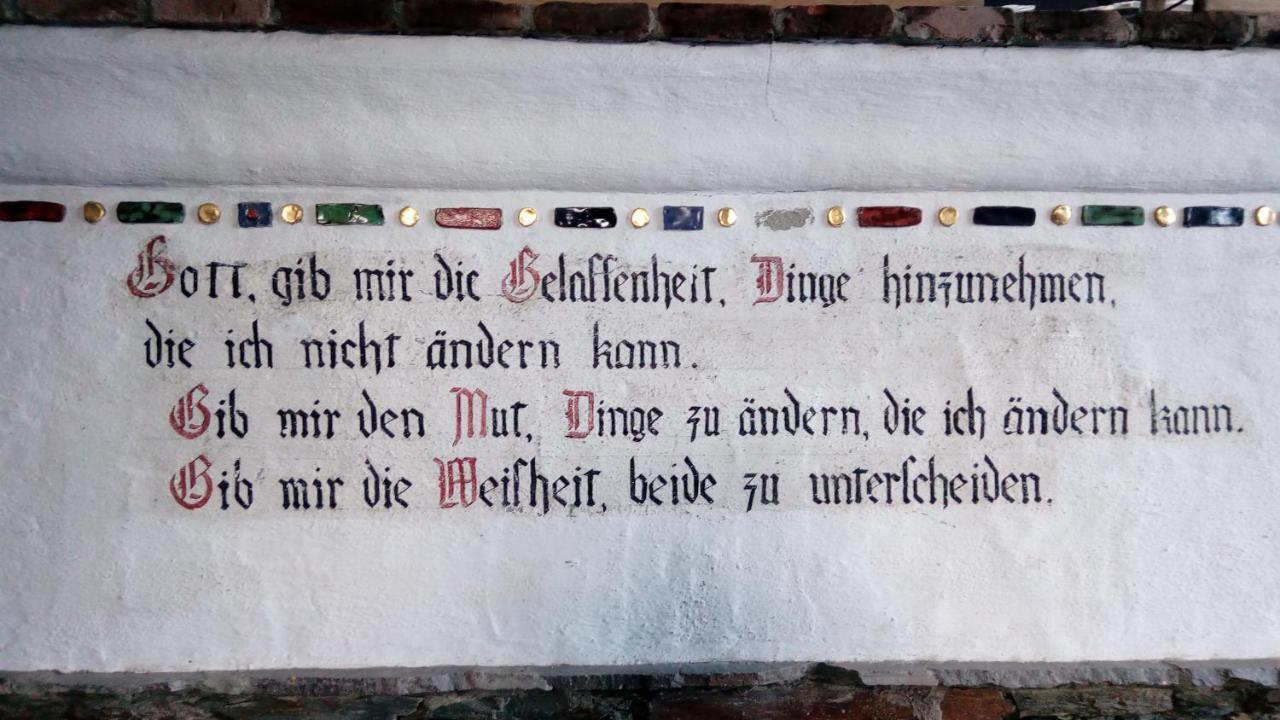 Gott, gib mir die Gelaſſenheit, Dinge hinzunehmen,
die ich nicht ändern kann.
Gib mir den Mut, Dinge zu ändern, die ich ändern kann.
Gib mir die Weiſheit, beide zu unterſcheiden.